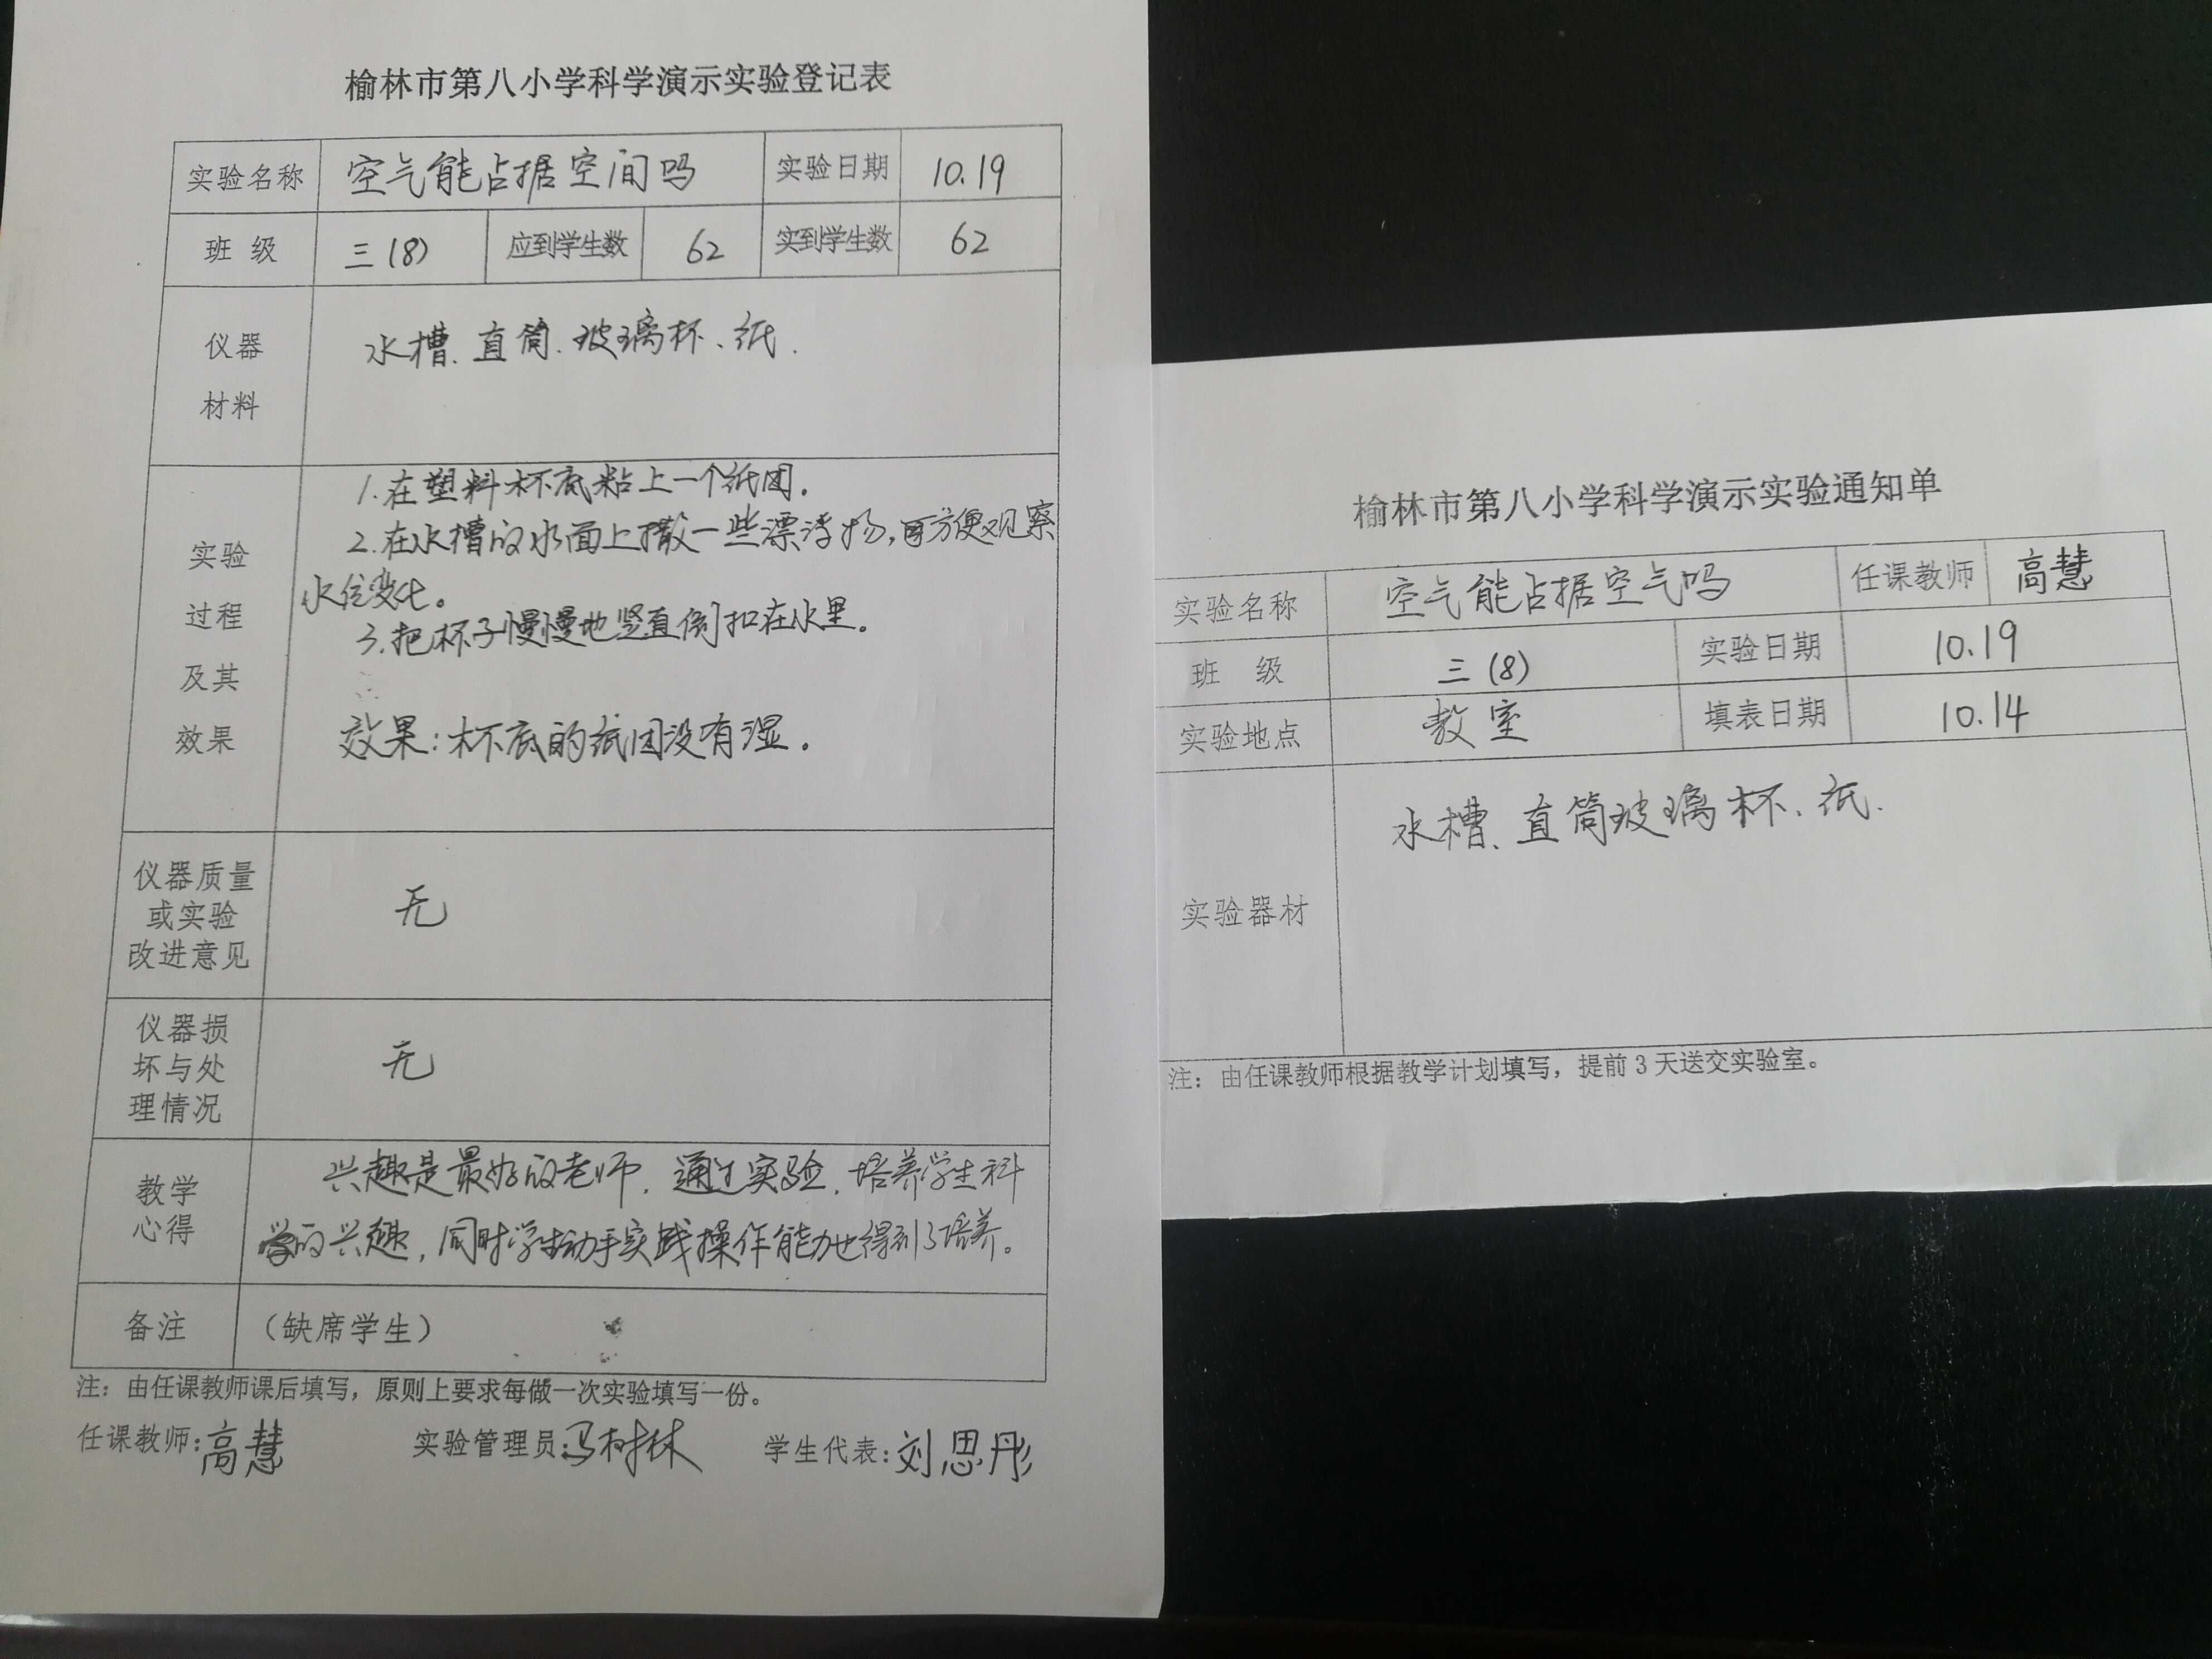 榆林市第八小学科学演示实验登记表
实验名称 空气能占据空间吗 实验日期 10.19
班 级 三(8) 应到学生数 62 实到学生数 62
仪器 材料 水槽、直筒、玻璃杯、纸.
实验 过程 及其 效果
1.在塑料杯底粘上一个纸团。
2.在水槽的水面上撒一些漂浮物,方便观察
水位变化。
3.把杯子慢慢地竖直倒扣在水里。
效果:杯底的纸团没有湿。
仪器质量
或实验
改进意见
无
仪器损
坏与处
理情况
无
教学
心得
兴趣是最好的老师.通过实验.培养学生科
学的兴趣,同时学生动手实践操作能力也得到了培养。
备注 (缺席学生)
注:由任课教师课后填写,原则上要求每做一次实验填写一份。
任课教师:高慧 实验管理员:马树林 学生代表:刘思彤
榆林市第八小学科学演示实验通知单
实验名称 空气能占据空气吗 任课教师 高慧
班 级 三(8) 实验日期 10.19
实验地点 教室 填表日期 10.14
实验器材 水槽、直筒玻璃杯、纸.
注:由任课教师根据教学计划填写,提前3天送交实验室。